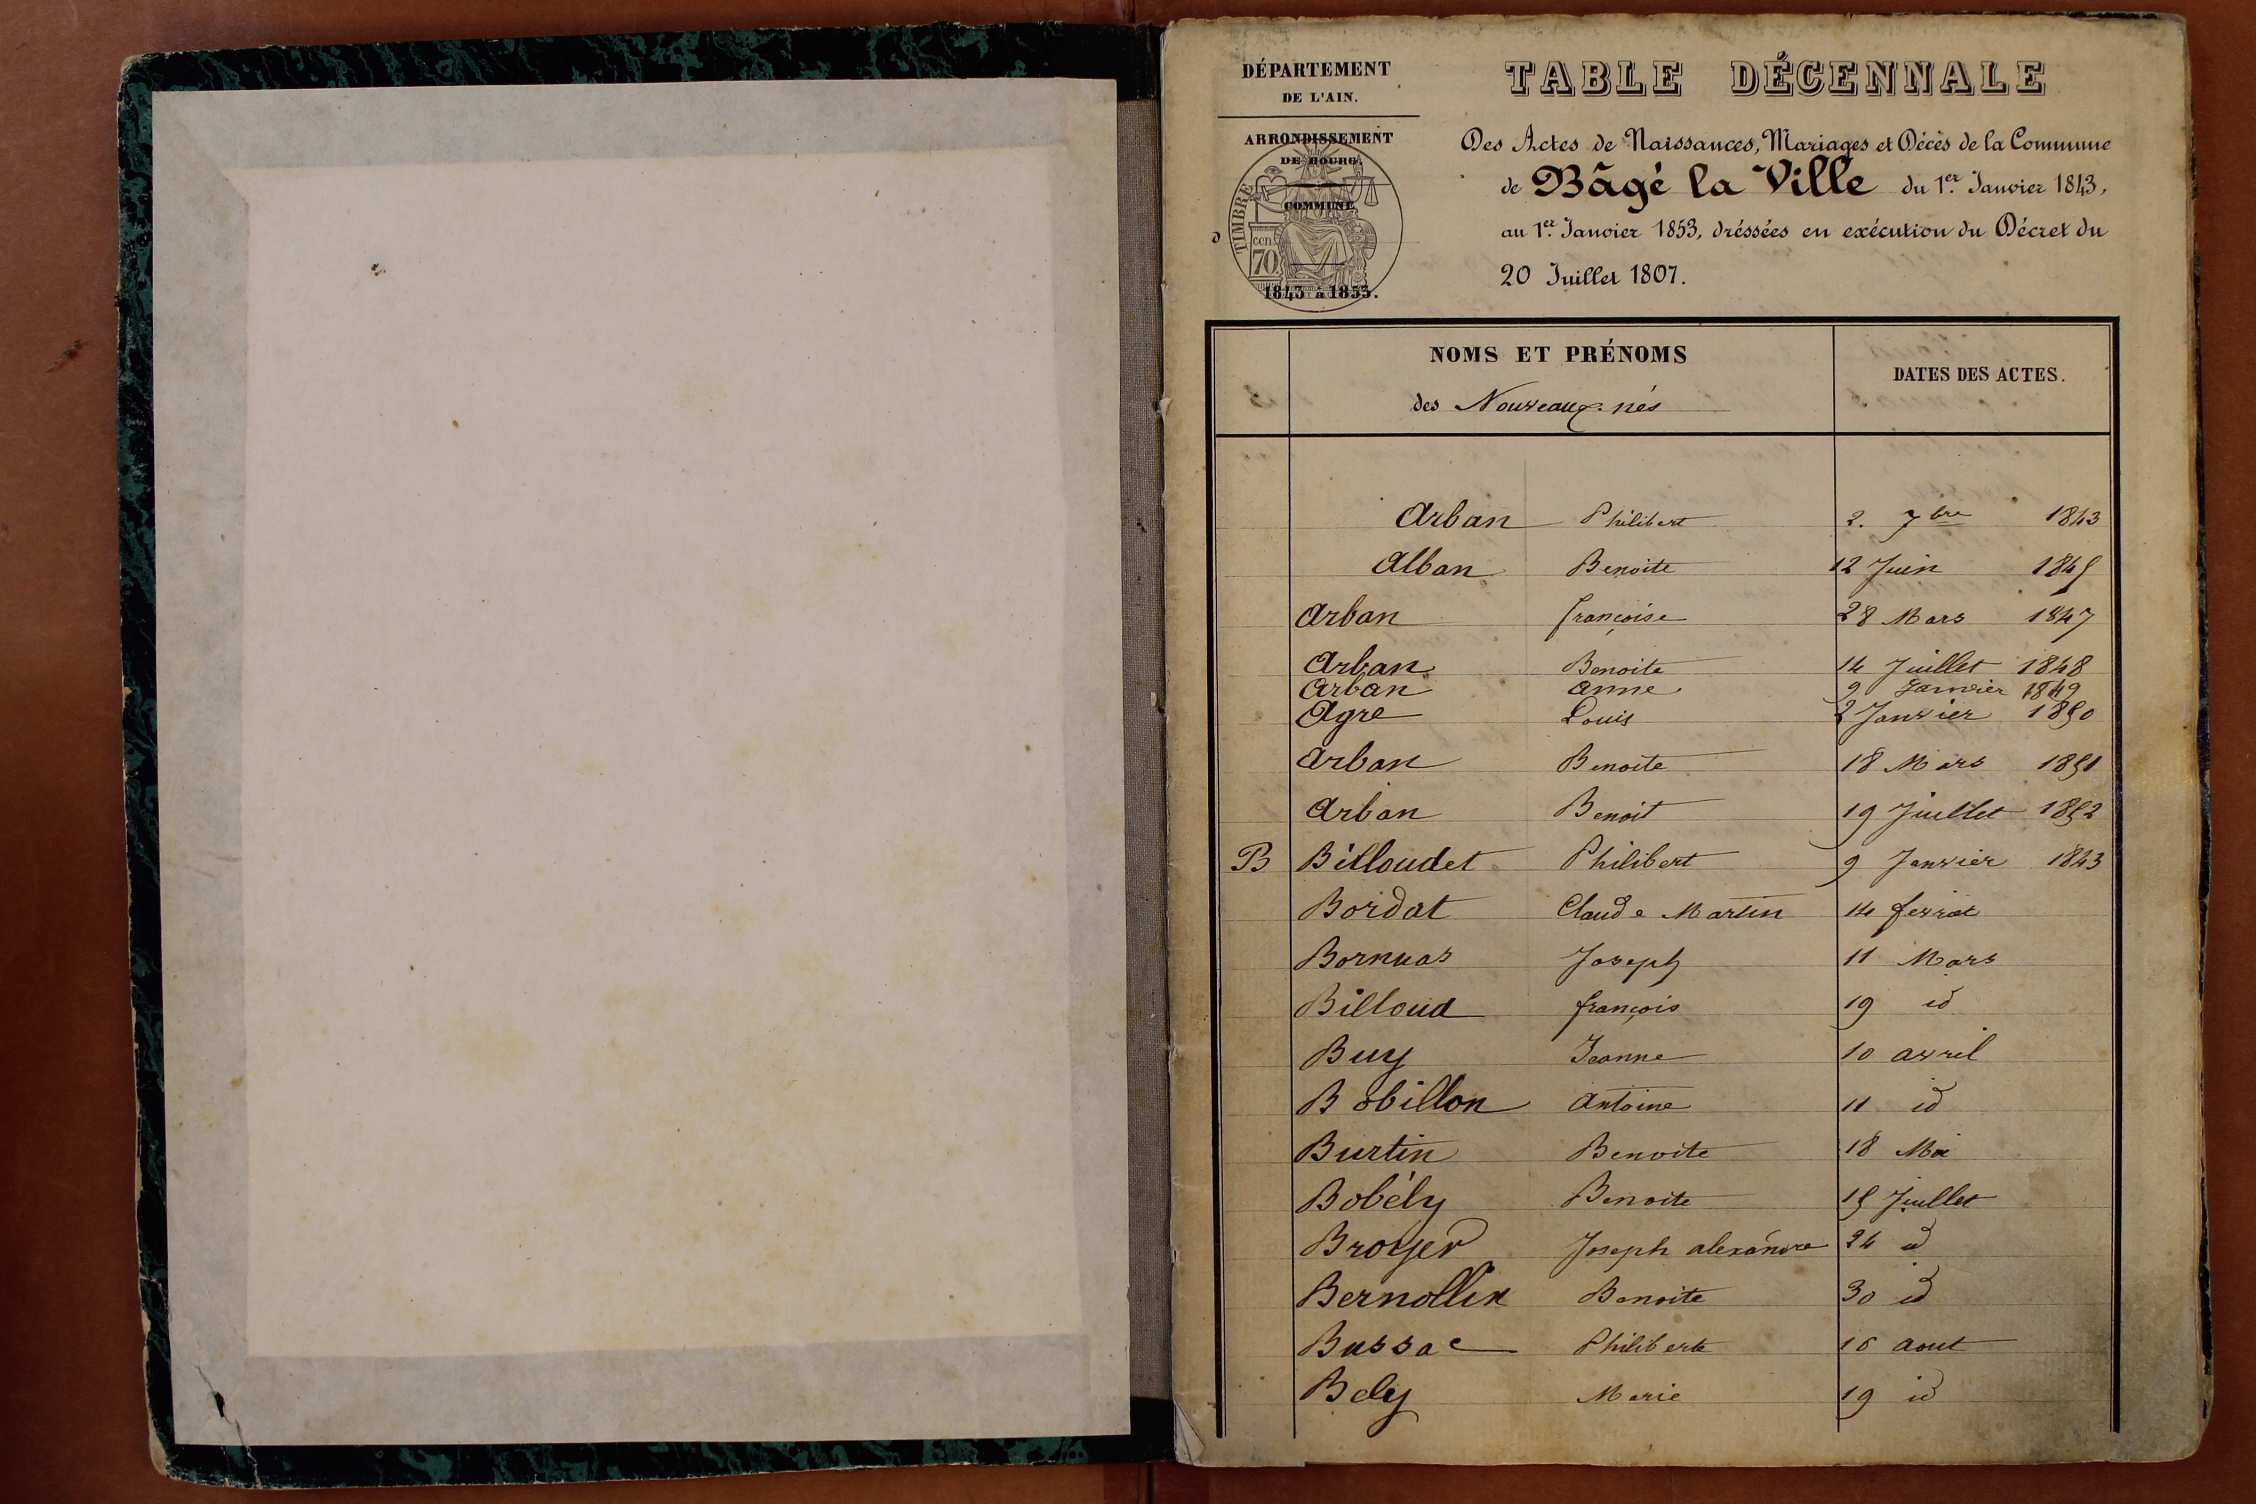 DÉPARTEMENT
DE L'AIN.
ARRONDISSEMENT
DE BOURG.
COMMUNE
TIMBRE
cen
70
1843 à 1853.
TABLE DÉCENNALE
Des Actes de Naissances, Mariages et Décès de la Commune
de Bâgé la Ville du 1er. Janvier 1843,
au 1er. Janvier 1853, dréssées en exécution du Décret du
20 Juillet 1807.
NOMS ET PRÉNOMS
des Nouveaux-nés
DATES DES ACTES.
Arban Philibert 2. 7bre 1843
Alban Benoite 12 Juin 1845
Arban françoise 28 Mars 1847
Arban Benoite 14 Juillet 1848
Arban anne 9 Janvier 1849
Agre Louis 2 Janvier 1850
Arban Benoite 18 Mars 1851
Arban Benoit 19 Juillet 1852
B Billoudet Philibert 9 Janvier 1843
Bordat Claude Martin 14 fevrier
Bornuas Joseph 11 Mars
Billoud françois 19 id
Buy Jeanne 10 avril
Bobillon Antoine 11 id
Burtin Benoite 18 Mai
Bobély Benoite 15 Juillet
Broyer Joseph alexandre 24 id
Bernollin Benoite 30 id
Bussac Philiberte 16 aout
Bely Marie 19 id